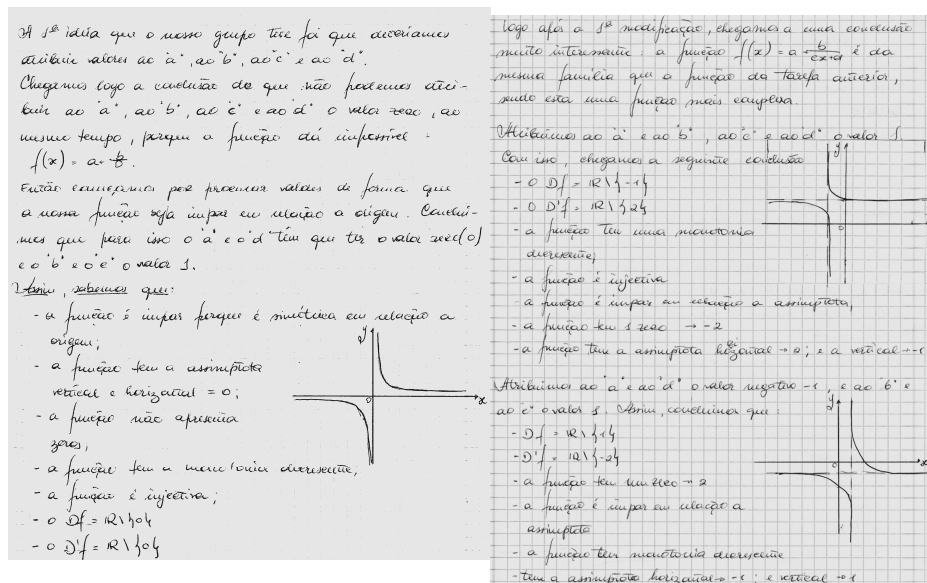 A 1ª idéia que o nosso grupo teve foi que deveríamos
atribuir valores ao "a", ao "b", ao "c" e ao "d".
Chegamos logo a conclusão de que não podemos atri-
buir ao "a", ao "b", ao "c" e ao "d" o valor zero, ao
mesmo tempo, porque a função dá impossível.
f(x) = a +
Então começamos por procurar valores de forma que
a nossa função seja impar em relação a origem. Conclui-
mos que para isso o "a" e o "d" têm que ter o valor zero (0)
e o "b" e o "c" o valor 1.
Assim, sabemos que:
- a função é impar porque é simétrica em relação a
origem;
- a função tem a assimptota
vertical e horizontal = 0;
- a função não apresenta
zeros;
- a função tem a monotonia decrescente;
- a função é injectiva;
- o Df = IR\{0}
- o D'f = IR\{0}
y
0
x
Logo após a 1ª modificação, chegamos a uma conclusão
muito interessante: a função f(x) = a + b/cx+d é da
mesma família que a função da tarefa anterior,
sendo esta uma função mais complexa.
Atribuimos ao "a" e ao "b", ao "c" e ao "d" o valor 1.
Com isso, chegamos a seguinte conclusão
- O Df = IR\{-1}
- O D'f = IR\{2}
- a função tem uma monotonia
decrescente;
- a função é injectiva
- a função é impar em relação a assimptota,
- a função tem 1 zero → -2
- a função tem a assimptota horizontal → ; e a vertical → -1
y
0
Atribuimos ao "a" e ao "d" o valor negativo -1, e ao "b" e
ao "c" o valor 1. Assim, concluimos que
- Df = IR\{1}
- D'f = IR\{-2}
- a função tem um zero → 2
- a função é impar em relação a
assimptota
- a função tem monotonia decrescente
- tem a assimptota horizontal → -1; e vertical → 1
y
0
x